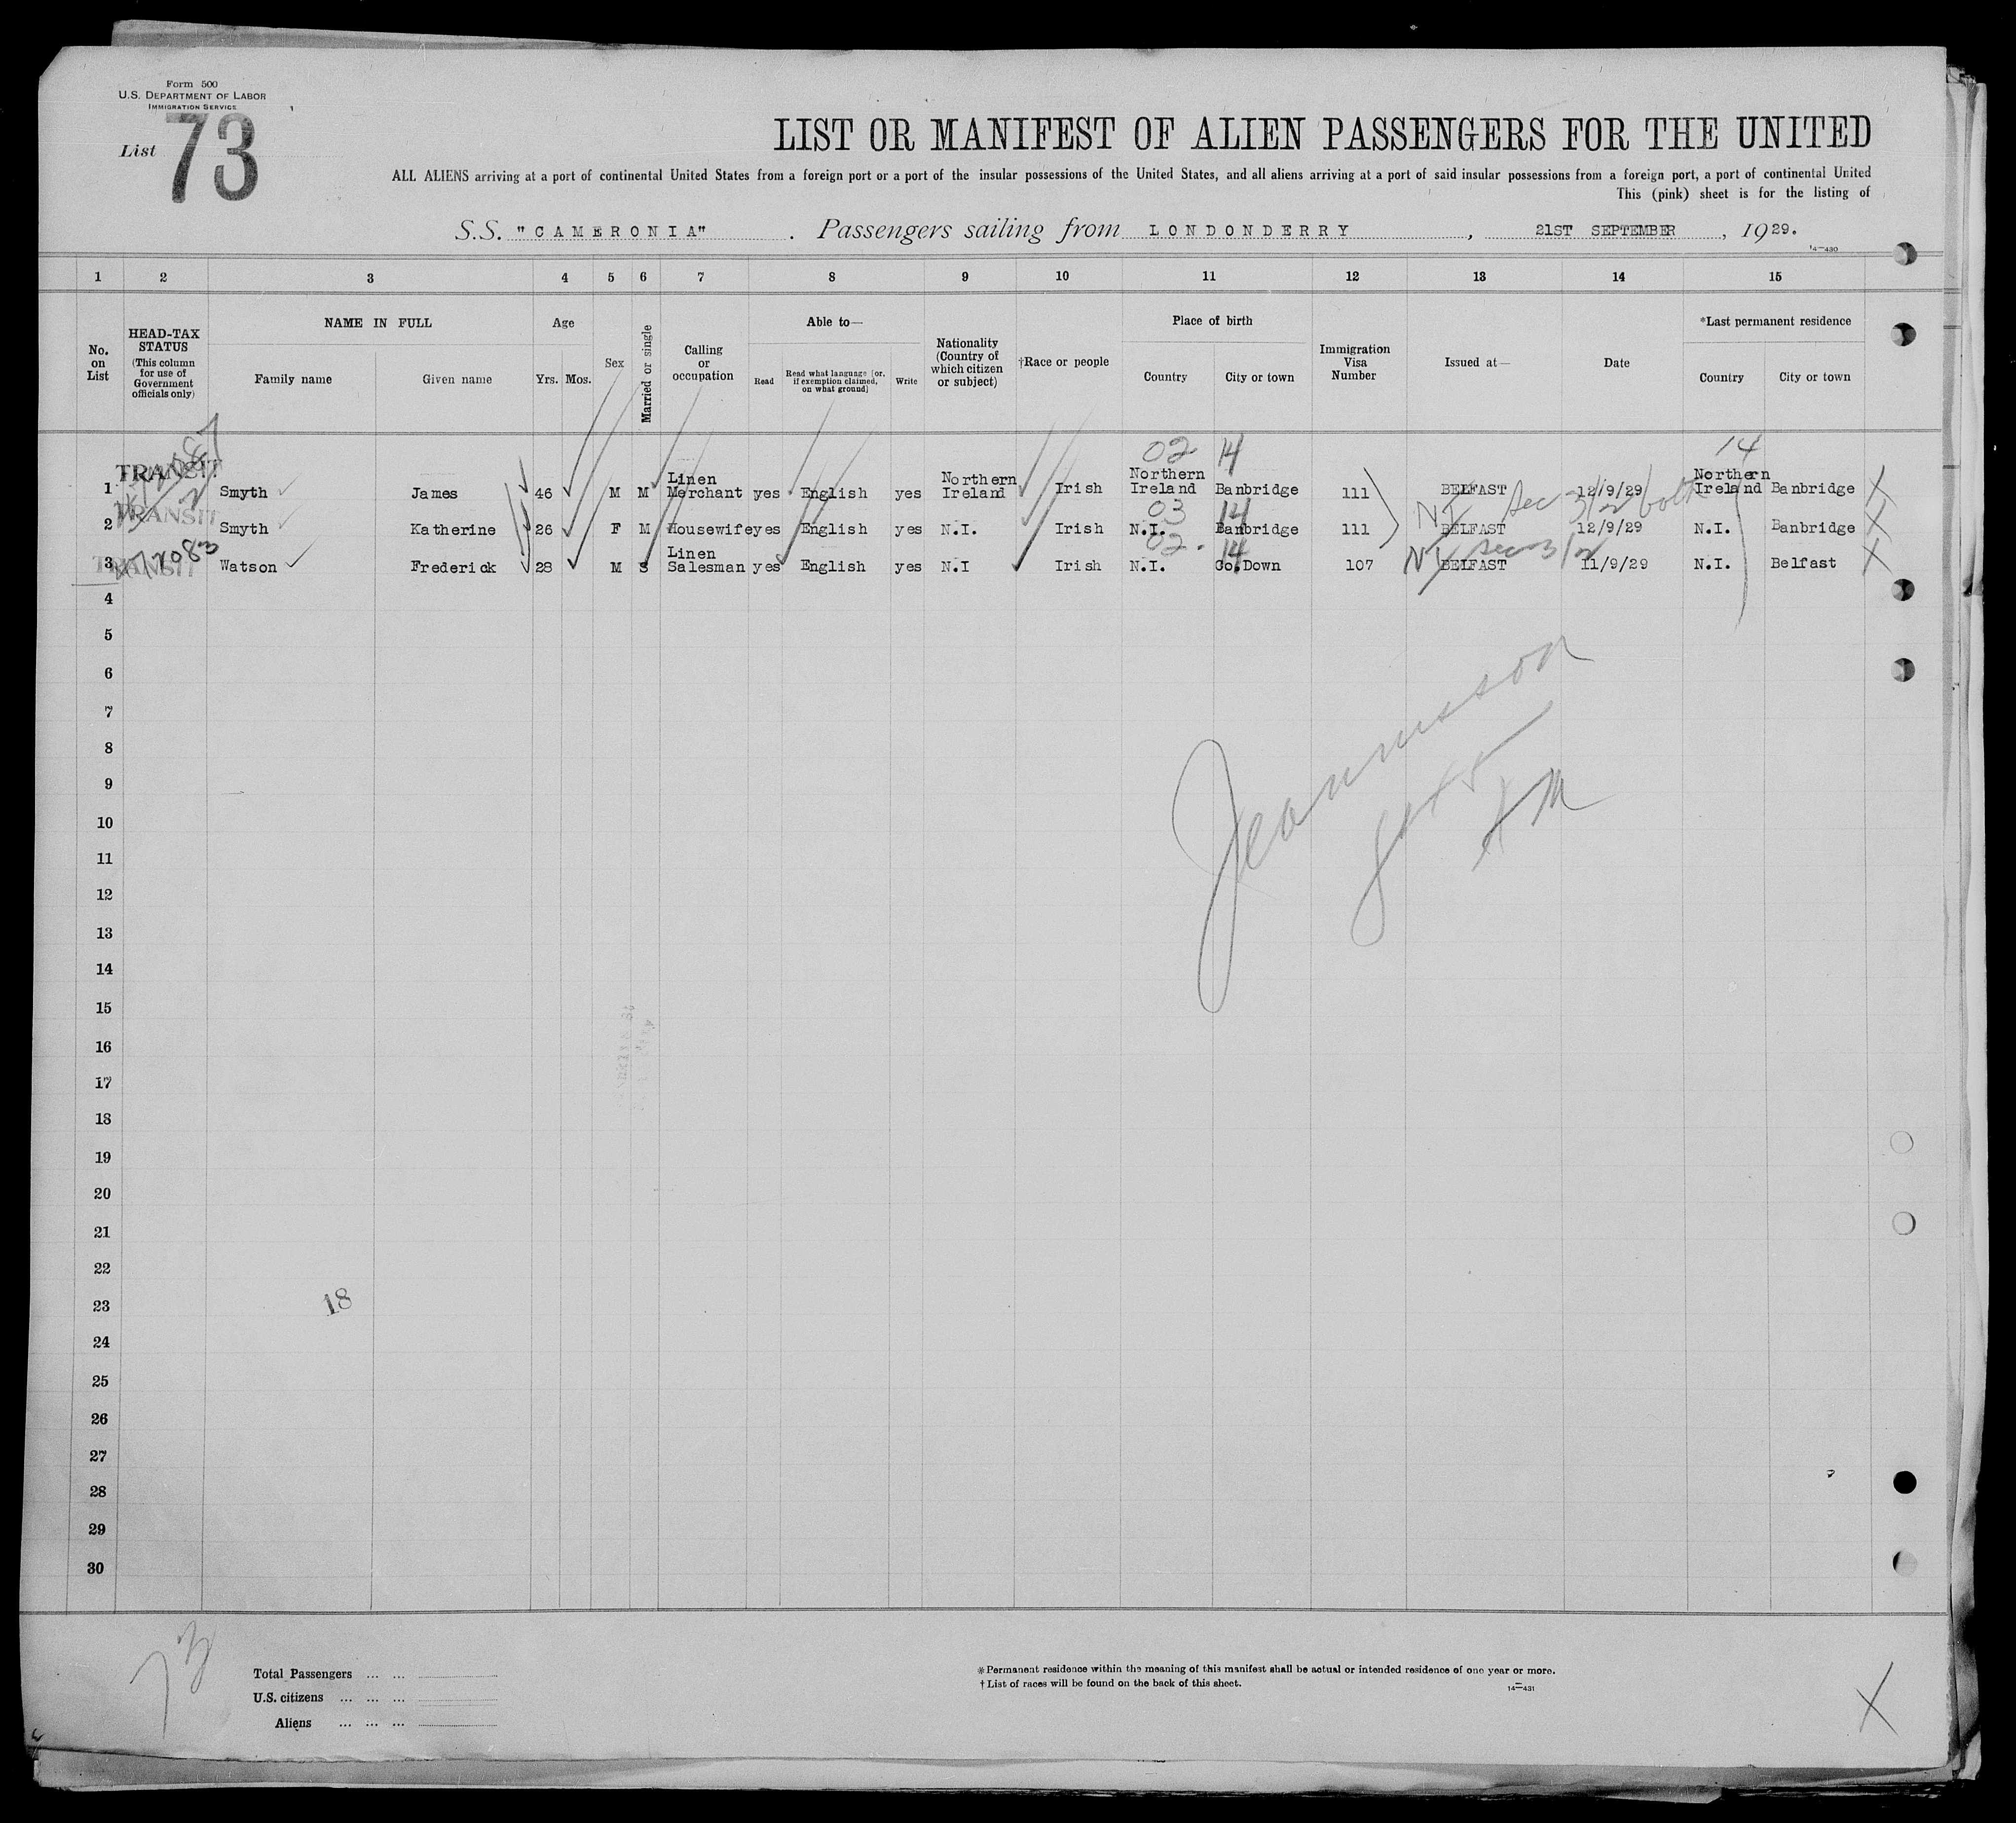 Form 500
U.S. DEPARTMENT OF LABOR
IMMIGRATION SERVICE
List 73
LIST OR MANIFEST OF ALIEN PASSENGERS FOR THE UNITED
ALL ALIENS arriving at a port of continental United States from a foreign port or a port of the insular possessions of the United States, and all aliens arriving at a port of said insular possessions from a foreign port, a port of continental United
This (pink) sheet is for the listing of
S.S. "CAMERONIA". Passengers sailing from LONDONDERRY, 21ST SEPTEMBER, 1929.
14-430
1 2 3 4 5 6 7 8 9 10 11 12 13 14 15
No. on List
HEAD-TAX STATUS (This column for use of Government officials only)
NAME IN FULL
Family name Given name
Age
Yrs. Mos.
Sex
Married or single
Calling or occupation
Able to—
Read
Read what language [or, if exemption claimed, on what ground]
Write
Nationality (Country of which citizen or subject)
†Race or people
Place of birth
Country City or town
Immigration Visa Number
Issued at—
Date
*Last permanent residence
Country City or town
02 14 14
TRANSIT
1 Smyth James 46 M M Linen Merchant yes English yes Northern Ireland Irish Northern Ireland Banbridge 111 BELFAST 12/9/29 Northern Ireland Banbridge X
NI Sec 3/2 both
TRANSIT
03 14
2 Smyth Katherine 26 F M Housewife yes English yes N.I. Irish N.I. Banbridge 111 BELFAST 12/9/29 N.I. Banbridge X
TRANSIT
02. 14
NI Sec 3/2
3 Watson Frederick 28 M S Linen Salesman yes English yes N.I Irish N.I. Co.Down 107 BELFAST 11/9/29 N.I. Belfast X
4
5
6
7
8
9
10
11
12
13
14
15
16
17
18
19
20
21
22
23
18
24
25
26
27
28
29
30
73
Total Passengers ... ...
U.S. citizens ... ... ...
Aliens ... ... ...
*Permanent residence within the meaning of this manifest shall be actual or intended residence of one year or more.
†List of races will be found on the back of this sheet.
14-431
X